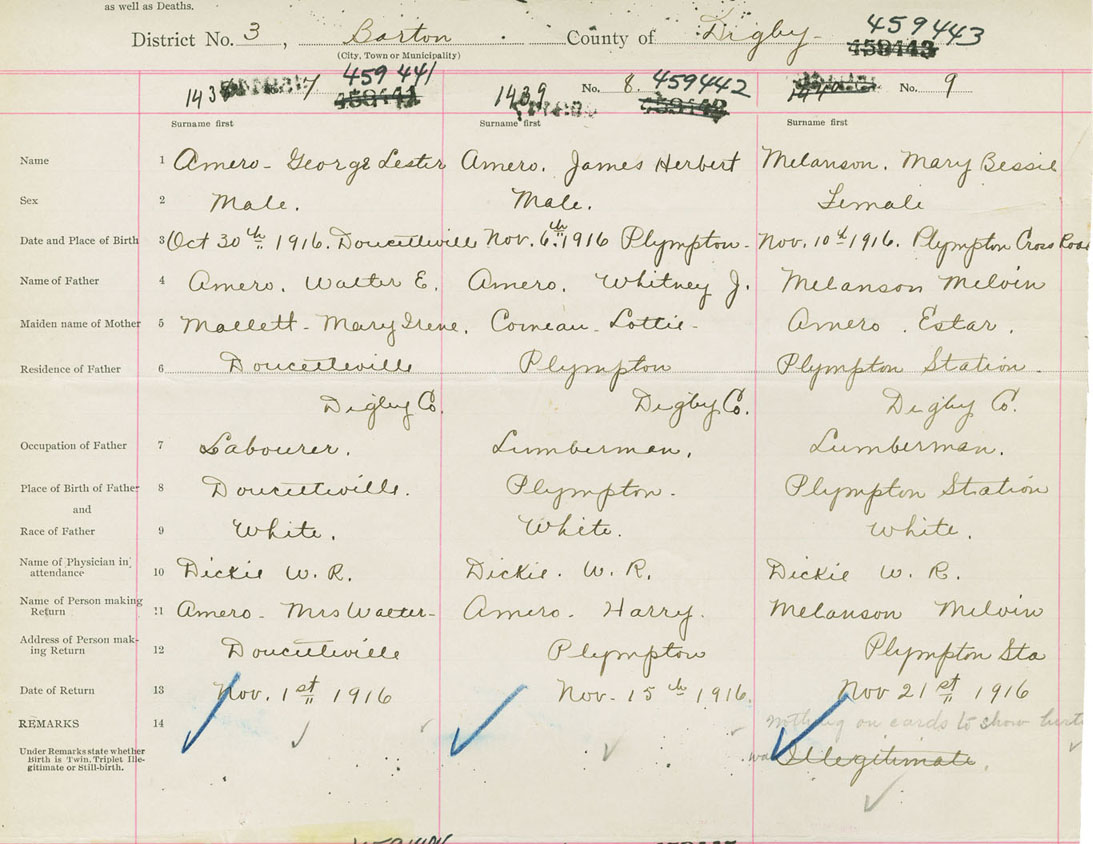 as well as Deaths.
District No. 3, Barton County of Digby 459443
(City, Town or Municipality) 459443
7 459441 No. 8. 459442 No. 9
143 459441 1439 459442
Surname first Surname first Surname first
Name 1 Amero - George Lester Amero. James Herbert Melanson. Mary Bessie
Sex 2 Male. Male. Female
Date and Place of Birth 3 Oct 30th 1916. Doucetteville Nov. 6th 1916 Plympton - Nov. 10th 1916. Plympton Cross Road
Name of Father 4 Amero. Walter E. Amero. Whitney J. Melanson Melvin
Maiden name of Mother 5 Mallett - Mary Irene. Comeau - Lottie - Amero. Estar.
Residence of Father 6 Doucetteville Plympton Plympton Station.
Digby Co. Digby Co. Digby Co.
Occupation of Father 7 Labourer. Lumberman. Lumberman.
Place of Birth of Father 8 Doucetteville. Plympton. Plympton Station
and
Race of Father 9 White. White. White.
Name of Physician in attendance 10 Dickie W. R. Dickie. W. R. Dickie W. R.
Name of Person making Return 11 Amero - Mrs Walter - Amero. Harry. Melanson Melvin
Address of Person making Return 12 Doucetteville Plympton Plympton Sta
Date of Return 13 Nov. 1st 1916 Nov. 15th 1916 Nov 21st 1916
REMARKS 14 nothing on cards to show birth
Under Remarks state whether Birth is Twin, Triplet Illegitimate or Still-birth. was Illegitimate.